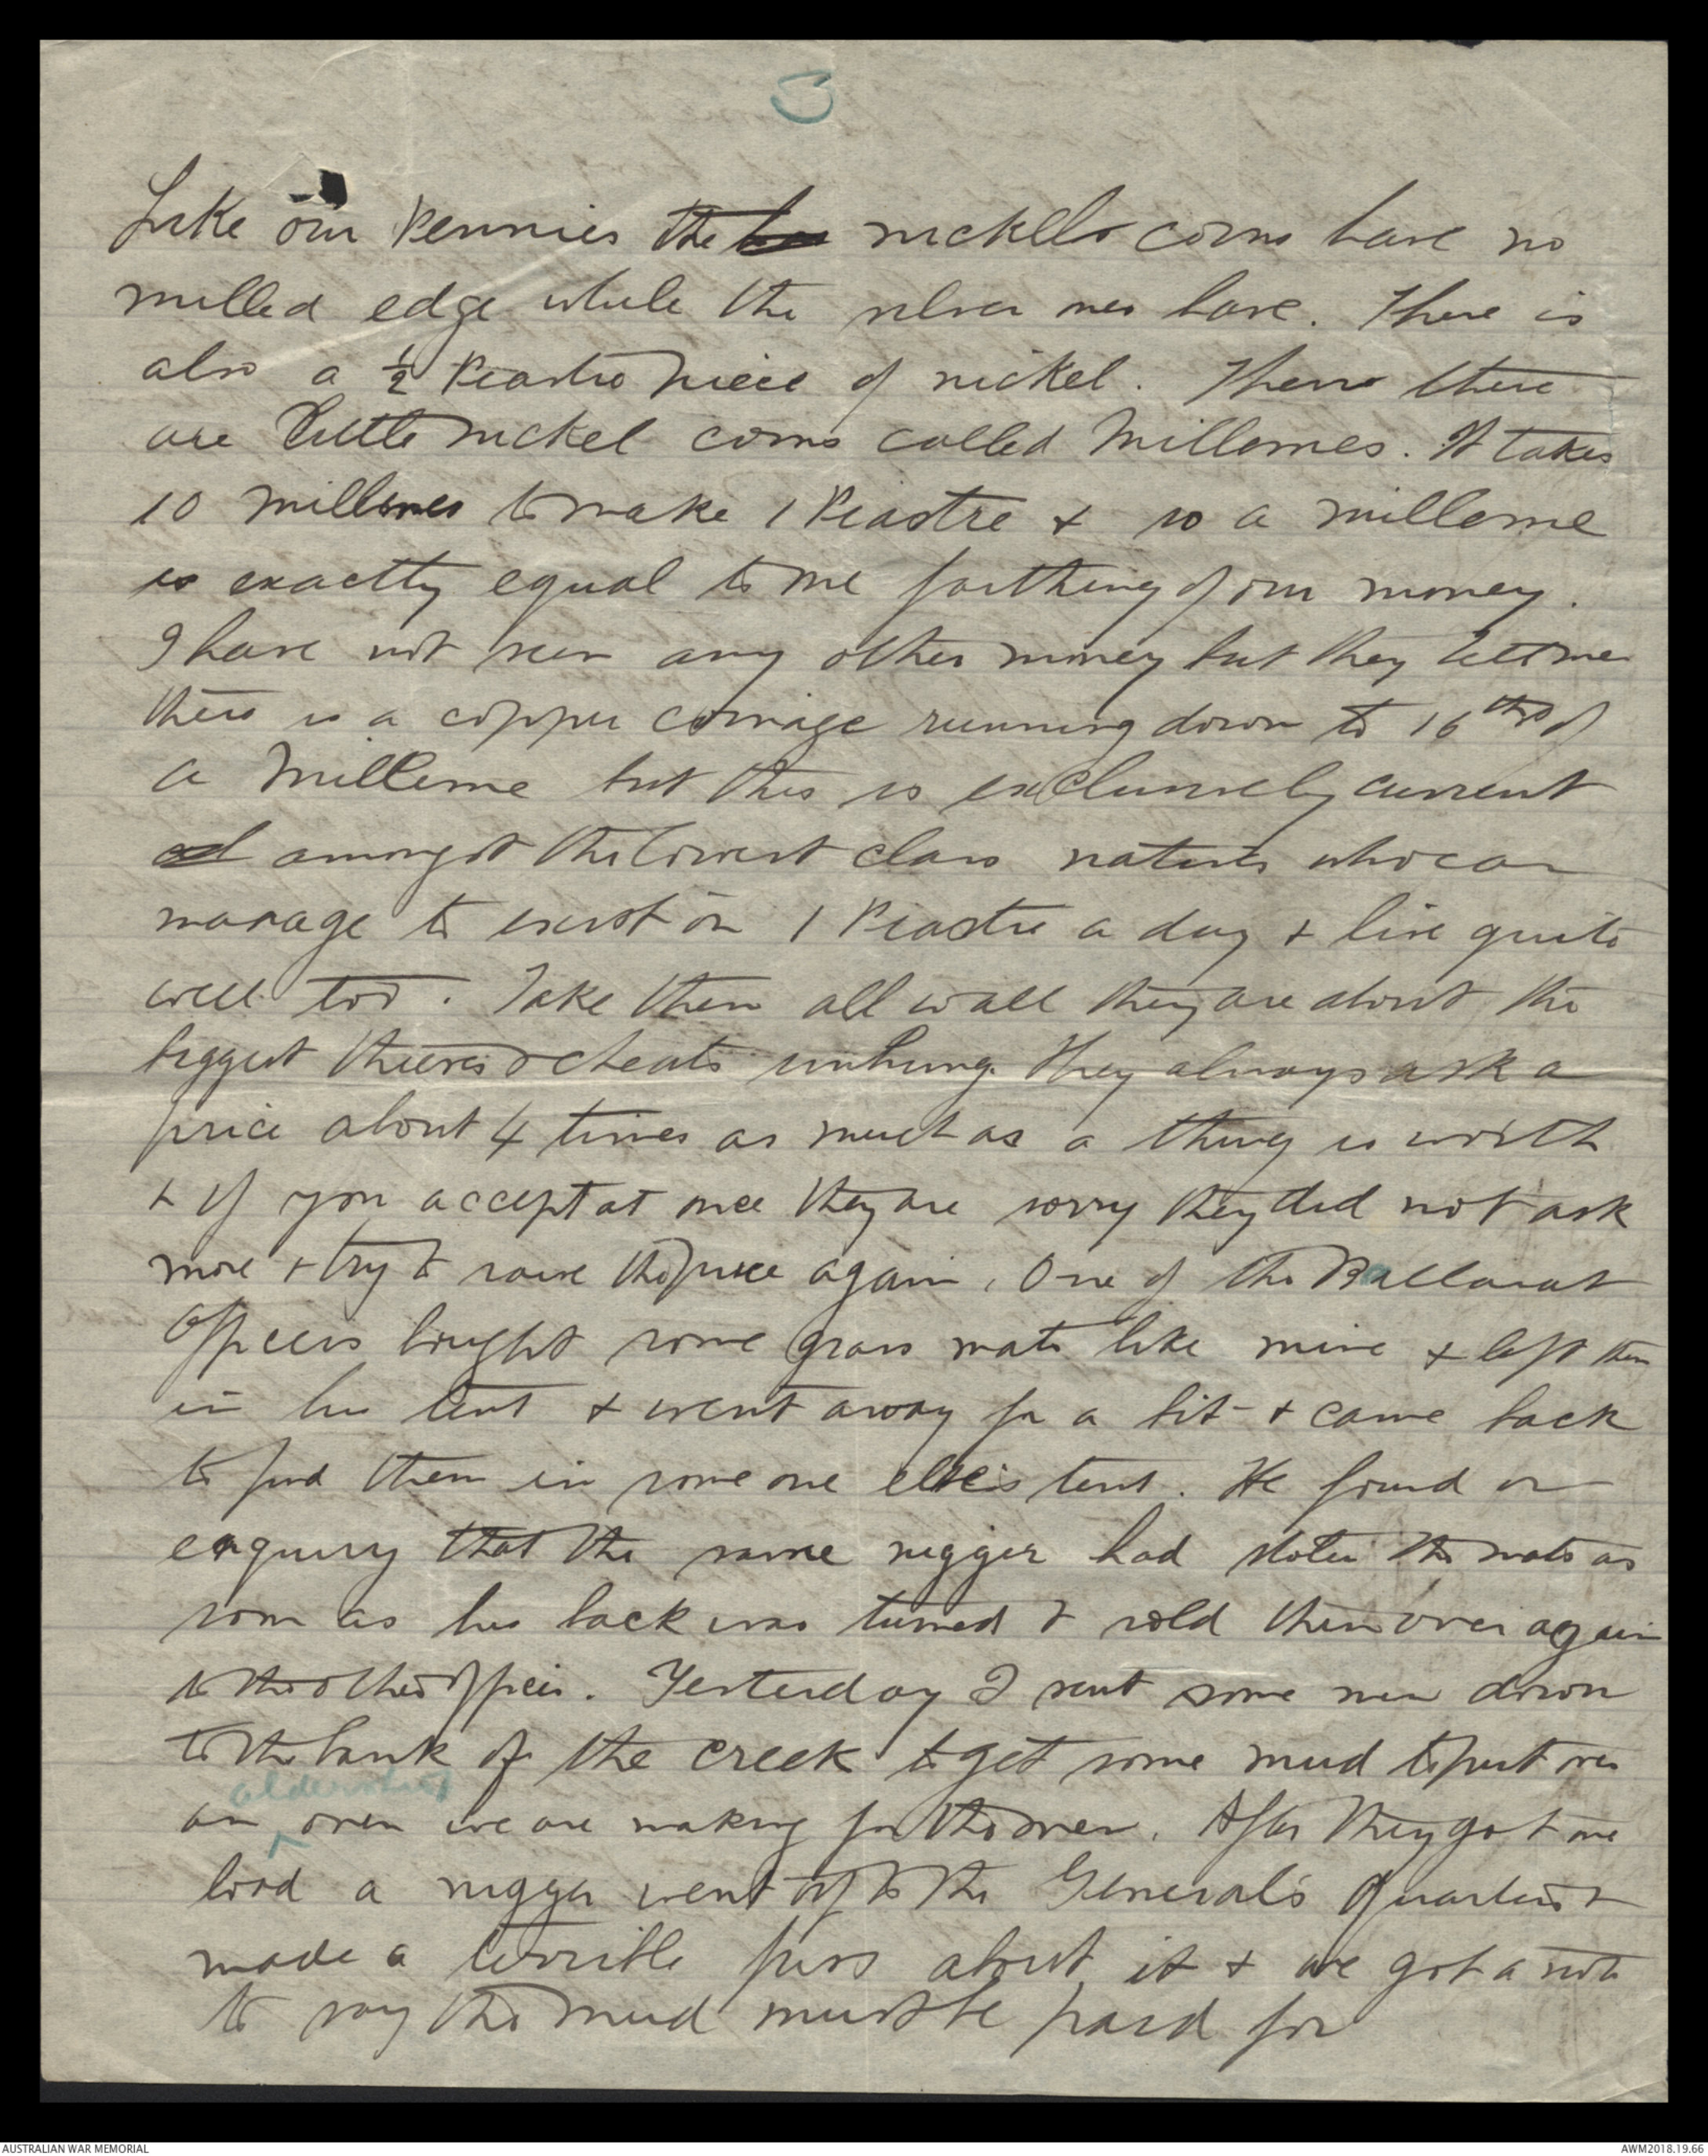 3
Like our Pennies the nickel coins have no
milled edge while the silver ones have. There is
also a ½ Piastre piece of nickel. Then there
are little nickel coins called Millemes. It takes
10 millemes to make 1 Piastre & so a milleme
is exactly equal to one farthing of our money.
I have not seen any other money but they tell me
there is a copper coinage running down to 16ths of
a Milleme but this is exclusively current
amongst the lowest class natives who can
manage to exist on 1 Piastre a day & live quite
well too. Take them all in all they are about the
biggest thieves & cheats unhung. They always ask a
price about 4 times as much as a thing is worth
& if you accept at once they are sorry they did not ask
more & try to raise the price again. One of the Ballarat
Officers bought some grass mats like mine & left them
in his tent & went away for a bit & came back
to find them in some one else's tent. He found on
enquiry that the same nigger had stolen the mats as
soon as his back was turned & sold them over again
to the other officer. Yesterday I sent some men down
to the bank of the creek to get some mud to put over
aldershot
an oven we are making for the men. After they got one
load a nigger went off to the General's Quarters &
made a terrible fuss about it & we got a note
to say the mud must be paid for
AUSTRALIAN WAR MEMORIAL
AWM2018.19.66